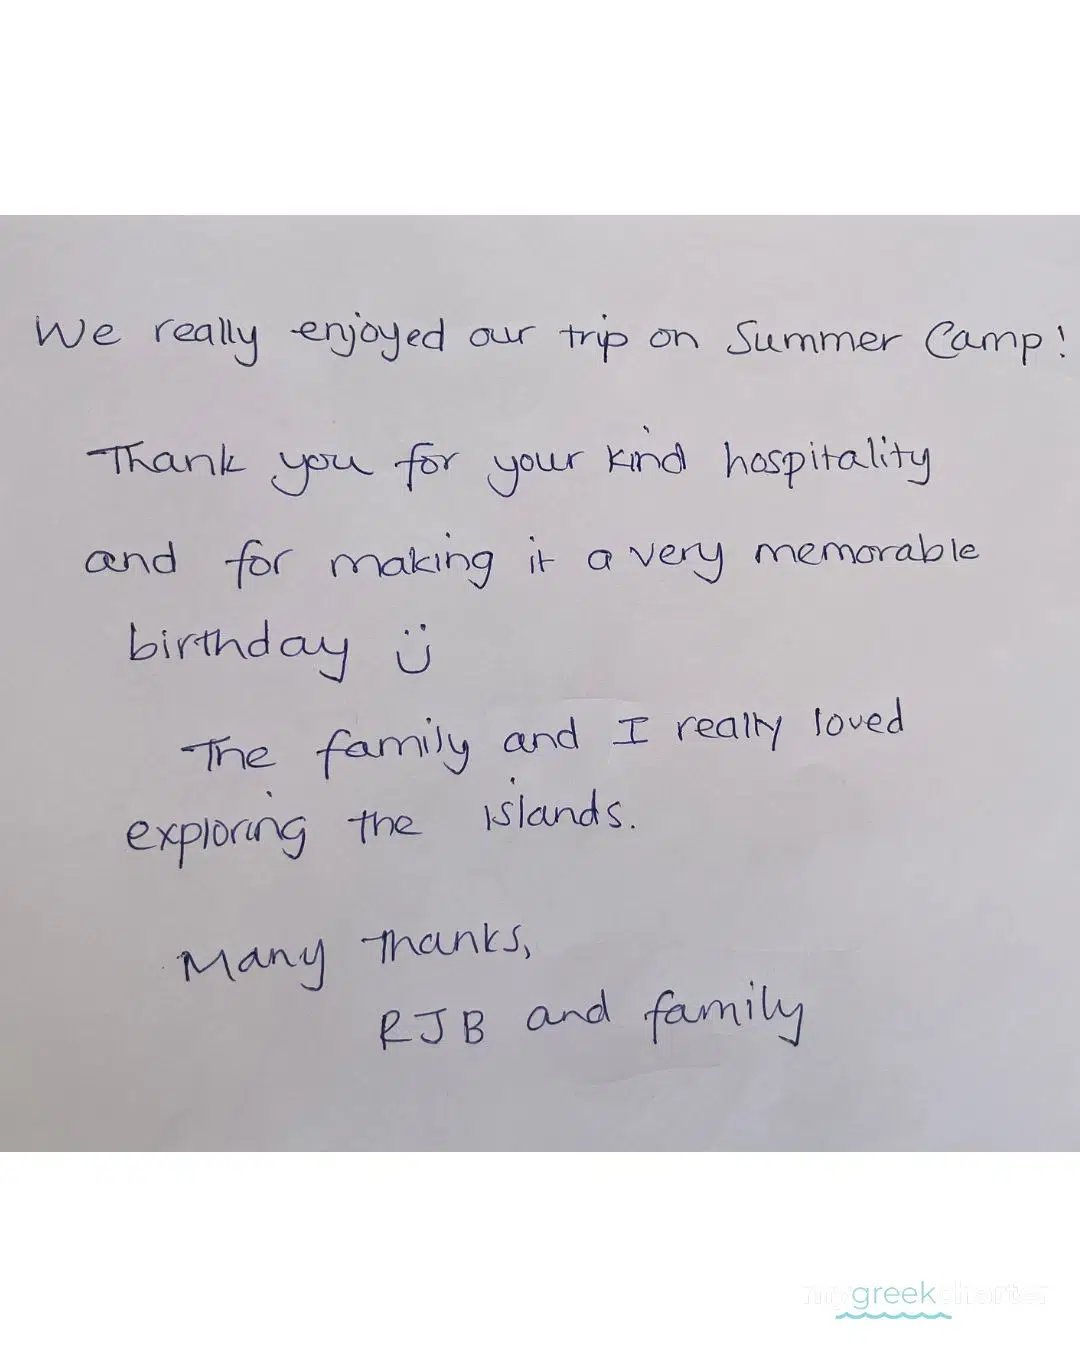 We really enjoyed our trip on Summer Camp!
Thank you for your kind hospitality
and for making it a very memorable
birthday :)
The family and I really loved
exploring the islands.
Many Thanks,
RJB and family
mygreekcharter